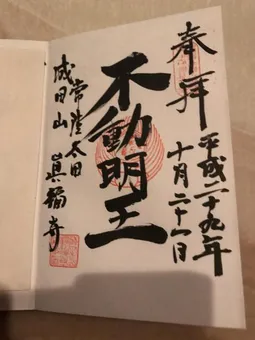 奉拝
平成二十九年
十月二十一日
不動明王
常陸太田
成田山 真福寺